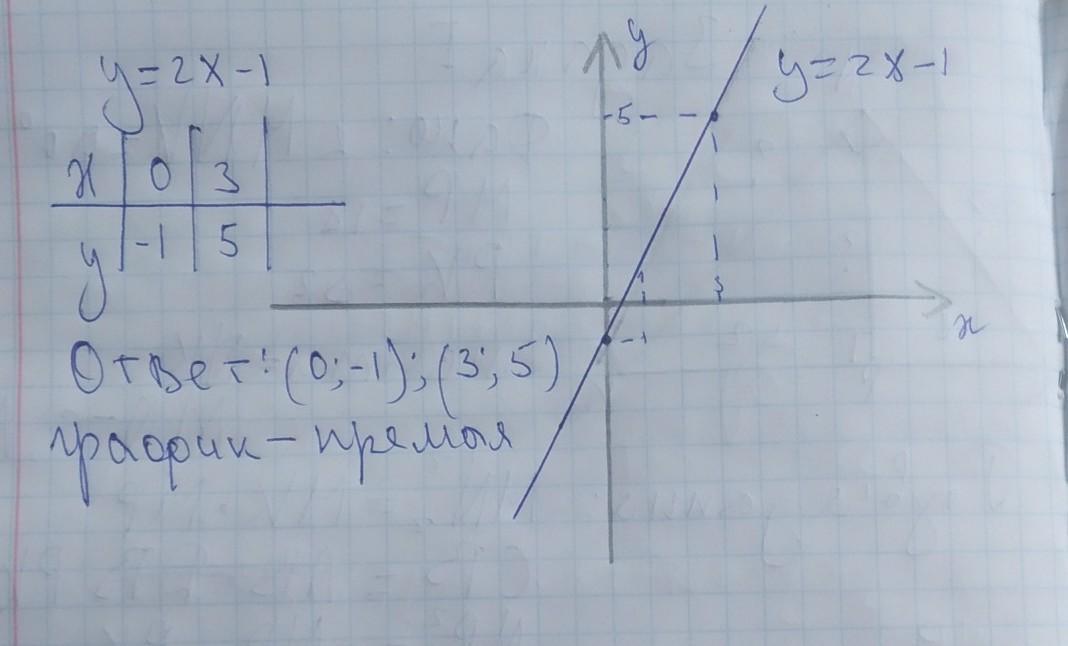 y=2x-1
x | 0 | 3 |
y | -1 | 5 |
Ответ: (0;-1); (3; 5)
график - прямая
y
y=2x-1
5
1
3
x
-1